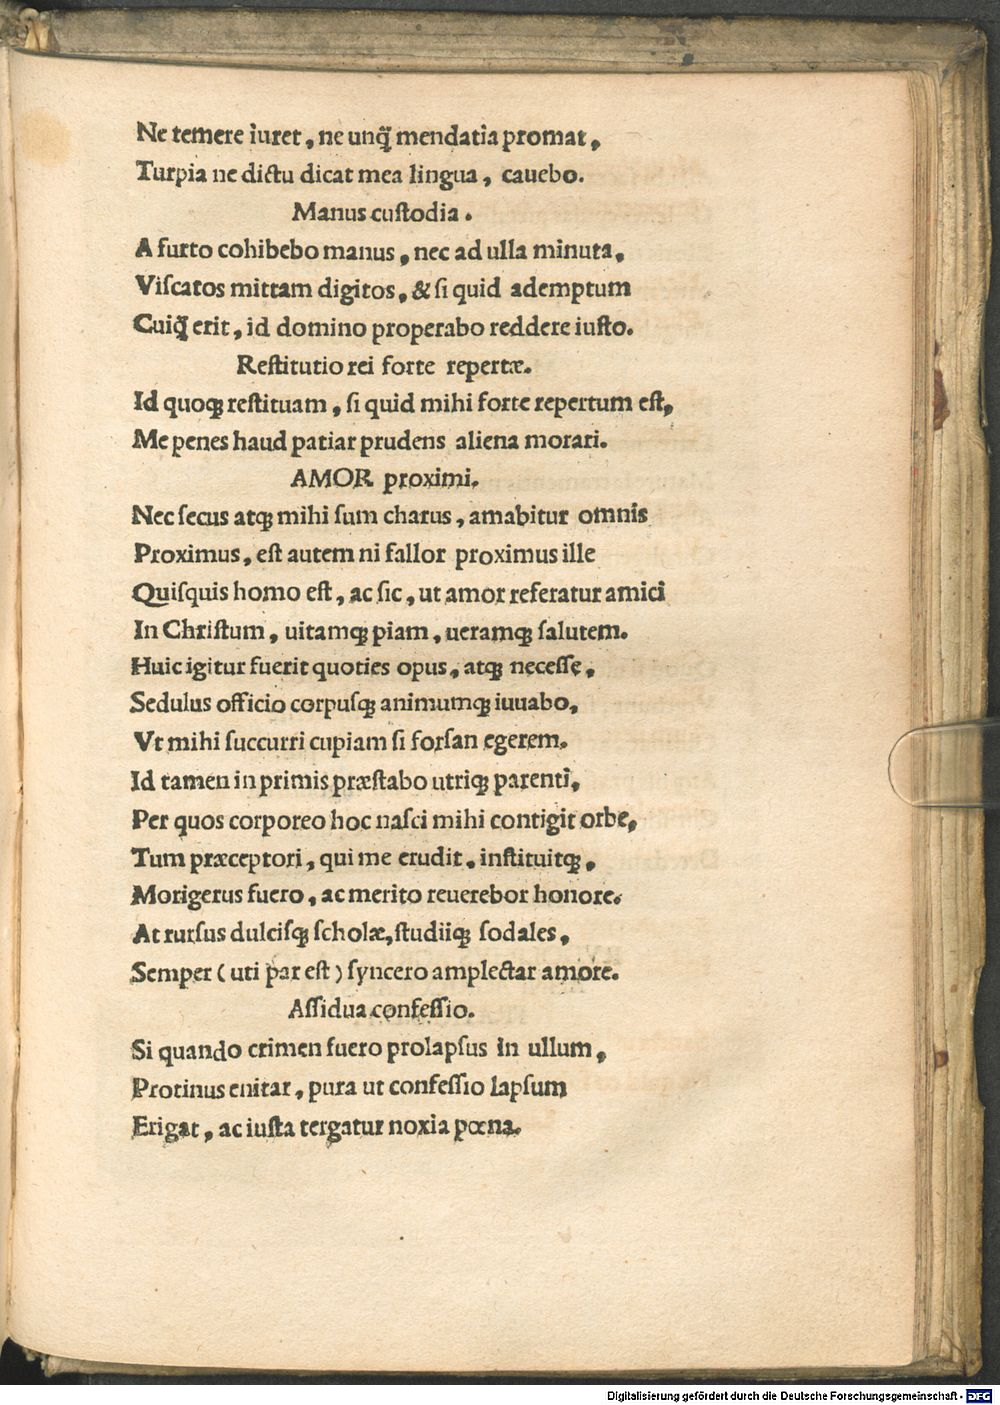 Ne temere iuret, ne unq̃ mendatia promat,
Turpia ne dictu dicat mea lingua, cauebo.
Manus custodia.
A furto cohibebo manus, nec ad ulla minuta,
Viſcatos mittam digitos, & ſi quid ademptum
Cuiq̃ erit, id domino properabo reddere iuſto.
Reſtitutio rei forte repertæ.
Id quoqꝫ reſtituam, ſi quid mihi forte repertum eſt,
Me penes haud patiar prudens aliena morari.
AMOR proximi.
Nec ſecus atqꝫ mihi ſum charus, amabitur omnis
Proximus, eſt autem ni fallor proximus ille
Quiſquis homo eſt, ac ſic, ut amor referatur amici
In Chriſtum, uitamqꝫ piam, ueramqꝫ ſalutem.
Huic igitur fuerit quoties opus, atqꝫ neceſſe,
Sedulus officio corpuſqꝫ animumqꝫ iuuabo,
Vt mihi ſuccurri cupiam ſi forſan egerem.
Id tamen in primis præſtabo utriqꝫ parenti,
Per quos corporeo hoc naſci mihi contigit orbe,
Tum præceptori, qui me erudit. inſtituitqꝫ,
Morigerus fuero, ac merito reuerebor honore.
At rurſus dulciſqꝫ ſcholæ, ſtudiiqꝫ ſodales,
Semper (uti par eſt) ſyncero amplectar amore.
Aſſidua confeſſio.
Si quando crimen fuero prolapſus in ullum,
Protinus enitar, pura ut confeſſio lapſum
Erigat, ac iuſta tergatur noxia pœna.
Digitalisierung gefördert durch die Deutsche Forschungsgemeinschaft - DFG